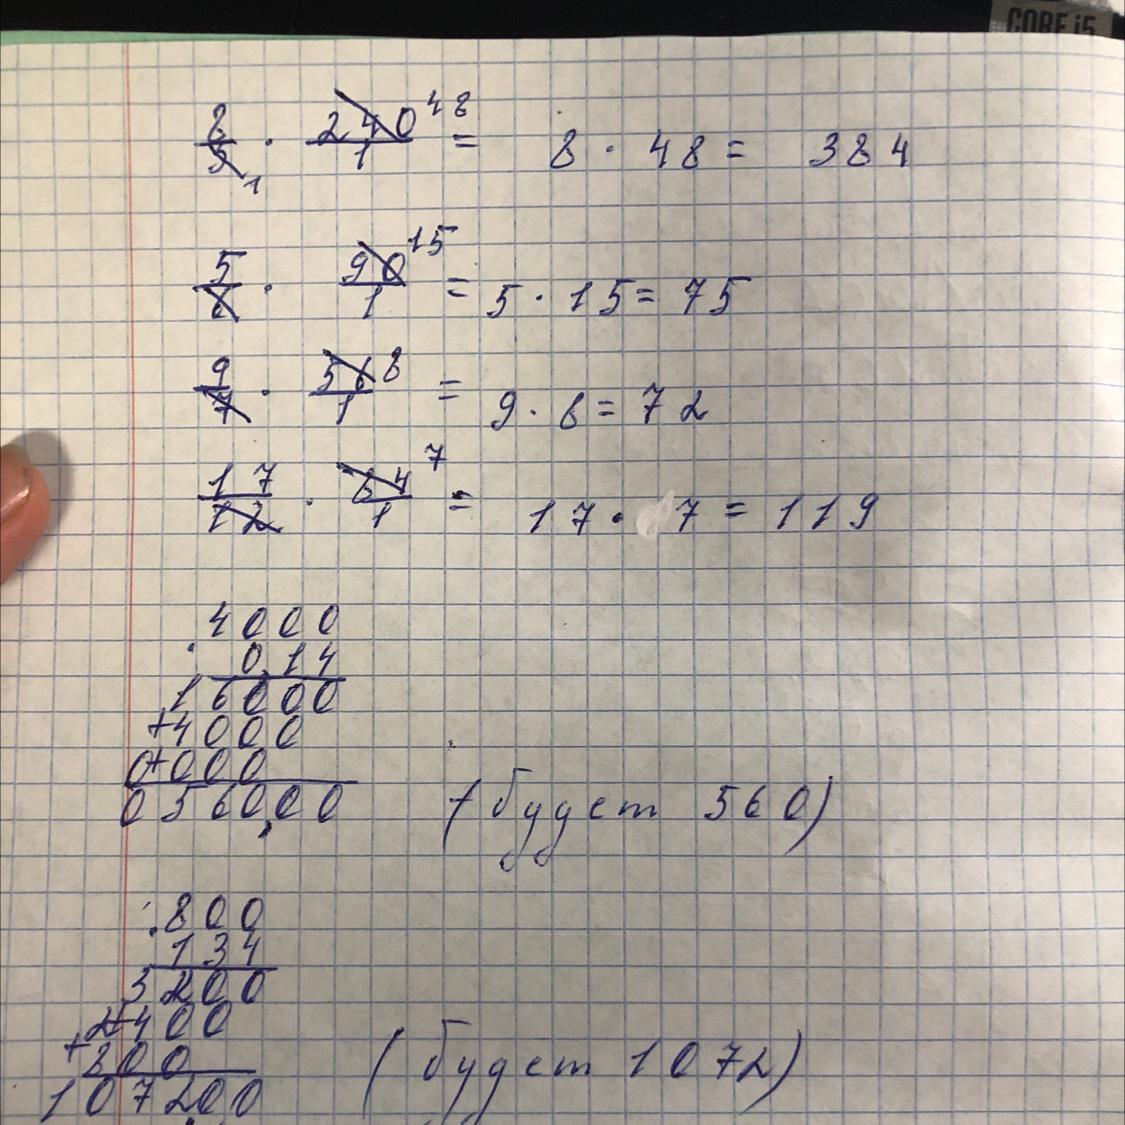 CORE i5
8/5 1 · 240/1 48 = 8 · 48 = 384
5/6 · 90/1 15 = 5 · 15 = 75
9/7 · 56/1 8 = 9 · 8 = 72
17/12 · 84/1 7 = 17 · 7 = 119
4000
· 0,14
16000
+4000
0+000
05600,00 (будет 560)
· 800
134
3200
2+400
+ 800
1072,00 (будет 1072)